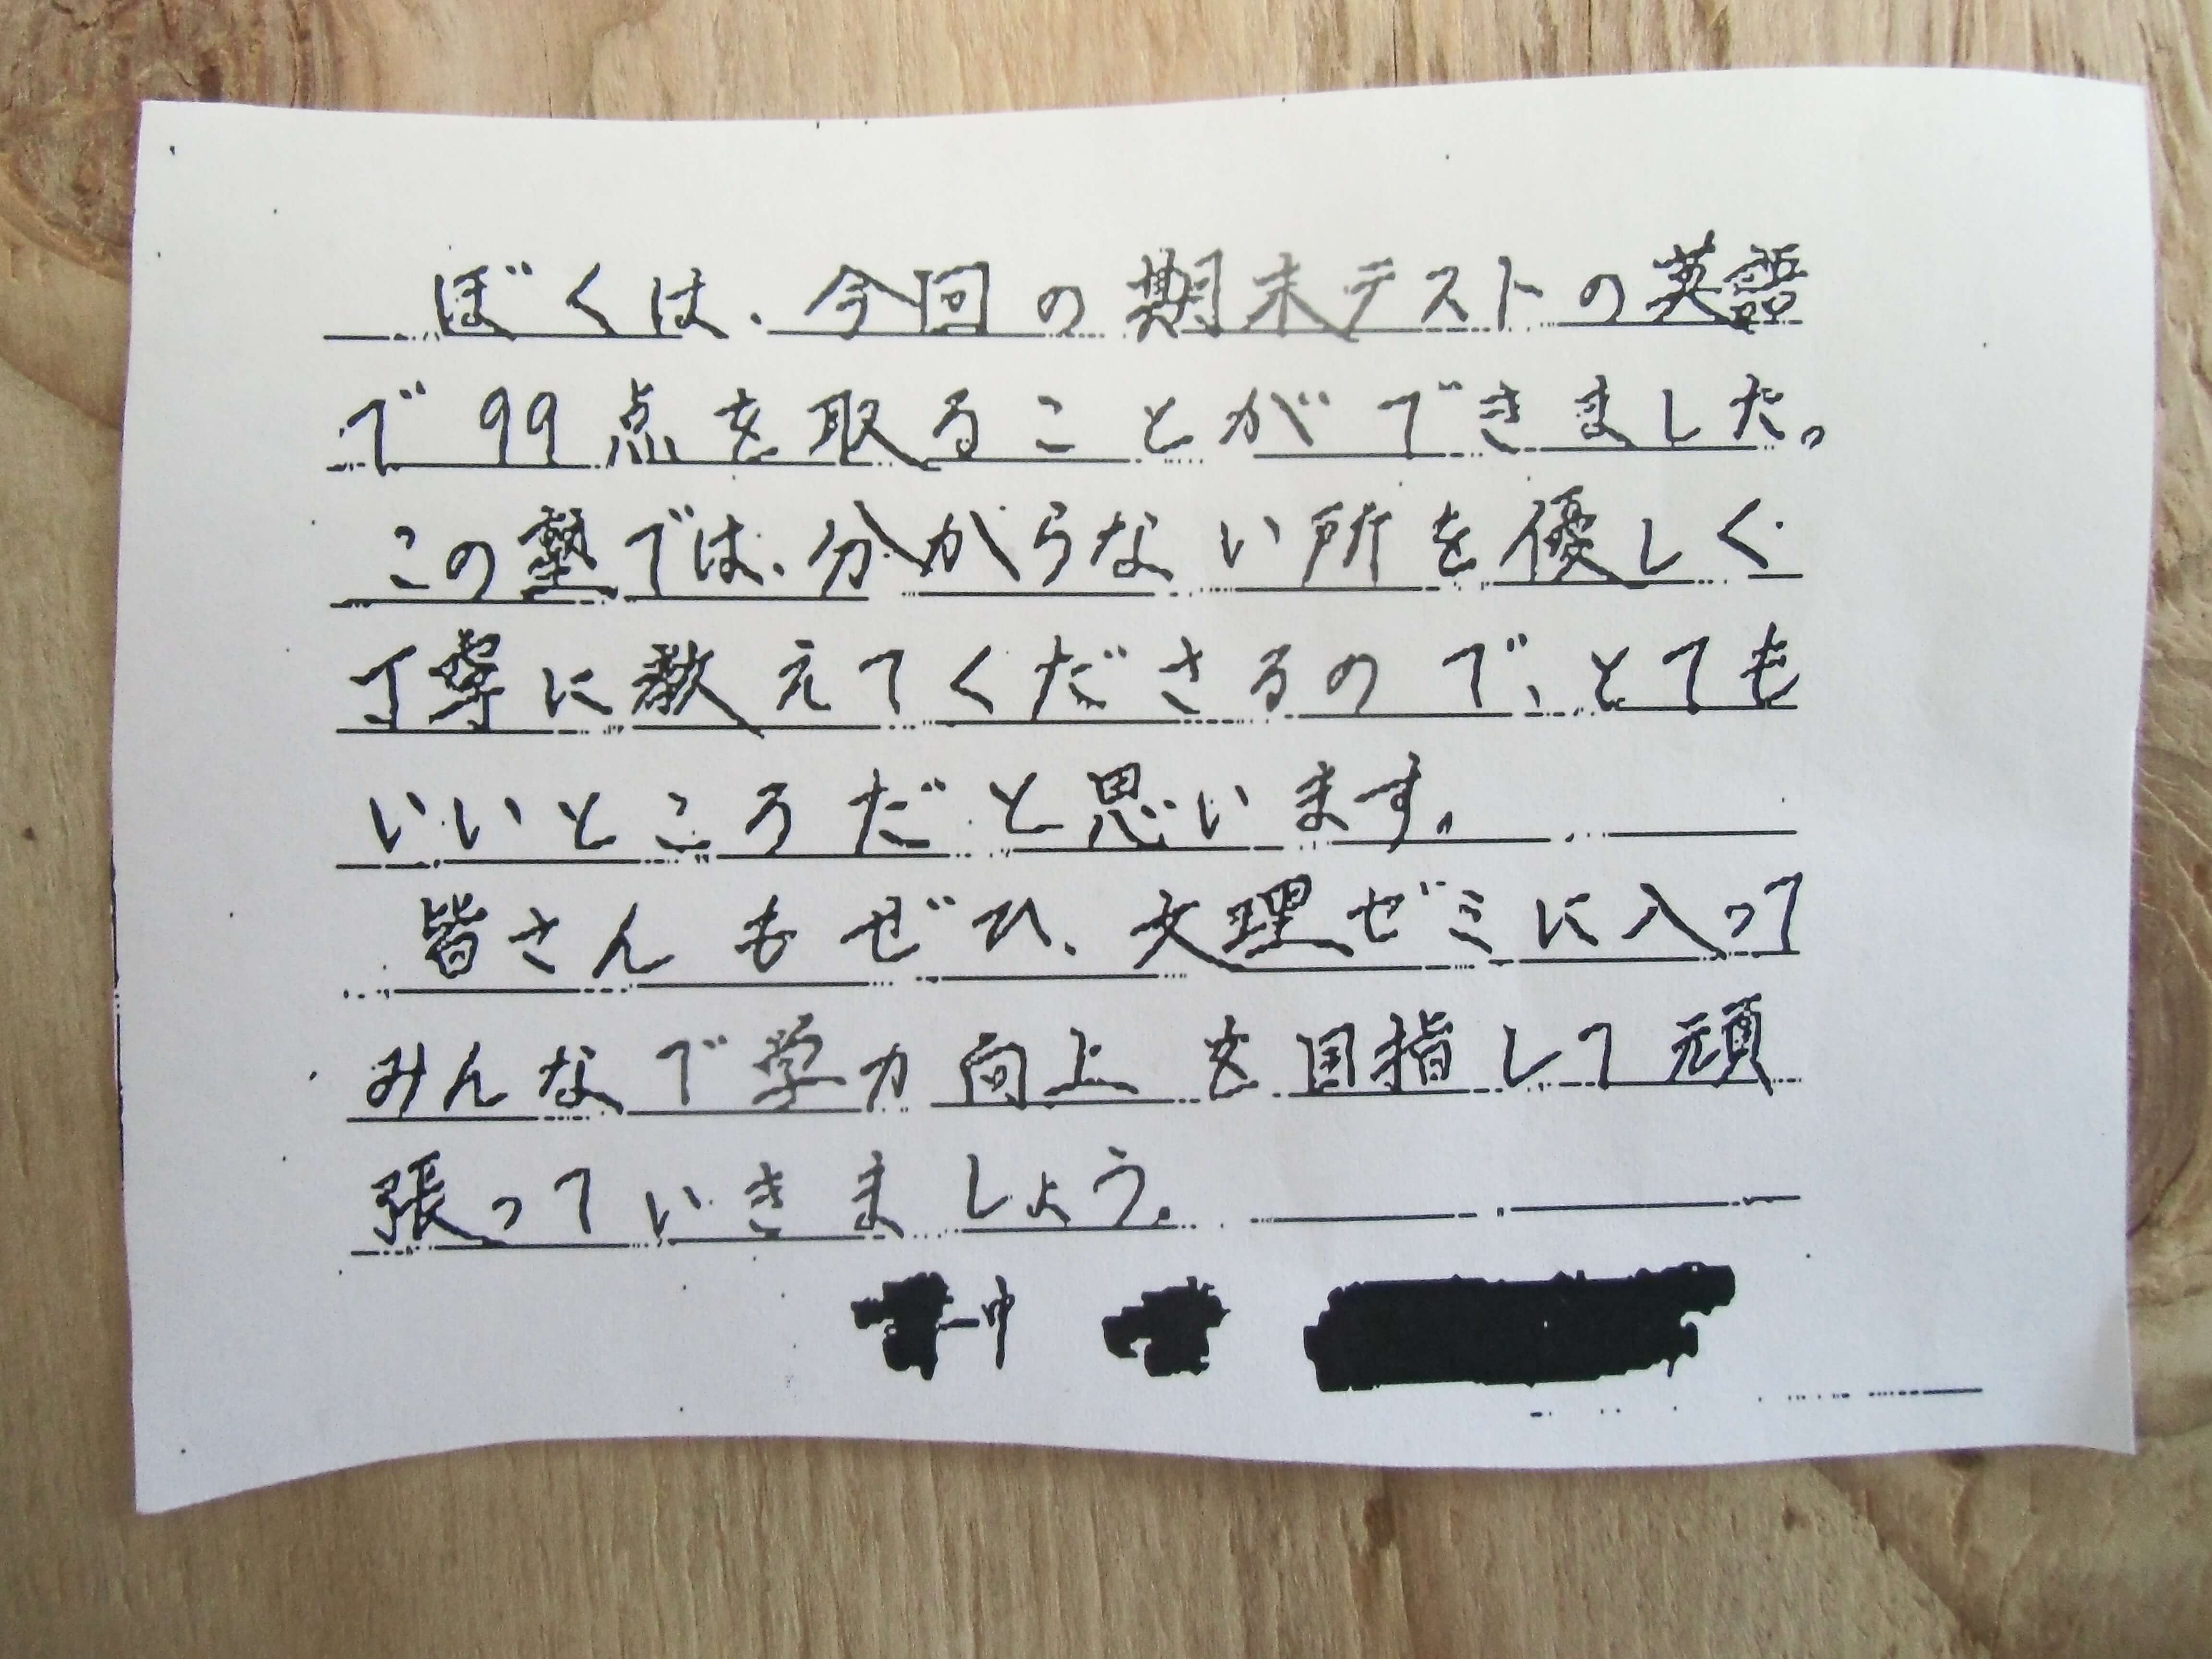 ぼくは、今回の期末テストの英語
で99点を取ることができました。
この塾では、分からない所を優しく
丁寧に教えてくださるので、とても
いいところだと思います。
皆さんもぜひ、文理ゼミに入って
みんなで学力向上を目指して頑
張っていきましょう。
中